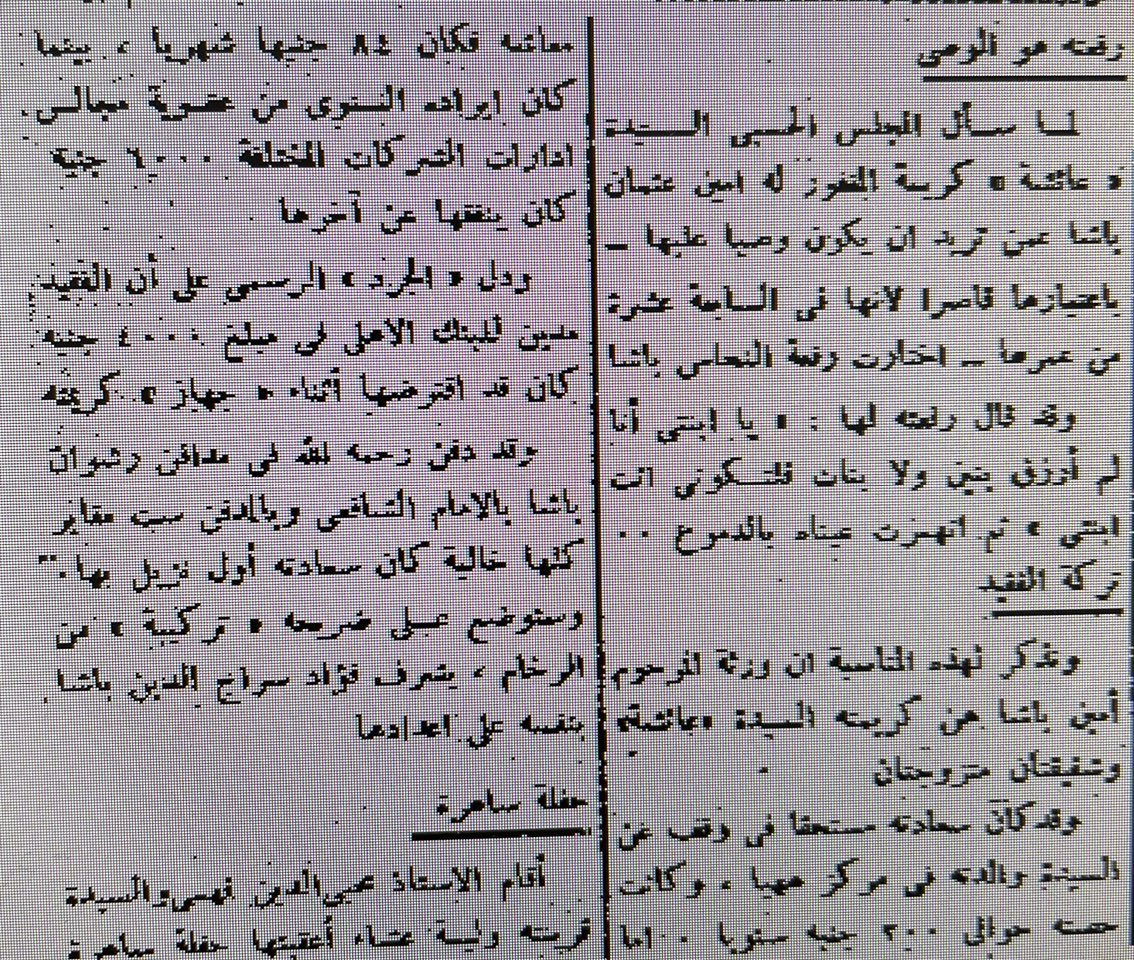 رفعته هو الوصى
لما سأل المجلس الحسبى السيدة
« عائشة » كريمة المغفور له امين عثمان
باشا عمن تريد ان يكون وصيا عليها —
باعتبارها قاصرا لانها فى السابعة عشرة
من عمرها — اختارت رفعة النحاس باشا
وقد قال رفعته لها : « يا ابنتى أنا
لم أرزق بنين ولا بنات فلتكونى انت
ابنتى » ثم انهمرت عيناه بالدموع ..
تركة الفقيد
ونذكر لهذه المناسبة ان ورثة المرحوم
أمين باشا هن كريمته السيدة «عائشة»
وشقيقتان متزوجتان
وقد كان سعادته مستحقا فى وقف عن
السيدة والدته فى مركز ههيا ، وكانت
حصته حوالى ٢٠٠ جنيه سنويا .. اما
معاشه فكان ٨٤ جنيها شهريا ، بينما
كان ايراده السنوى من عضوية مجالس
ادارات الشركات المختلفة ٦٠٠٠ جنيه
كان ينفقها عن آخرها
ودل « الجرد » الرسمى على أن الفقيد
مدين للبنك الاهلى فى مبلغ ٤٠٠٠ جنيه
كان قد اقترضها أثناء « جهاز » كريمته
وقد دفن رحمه الله فى مدافن رضوان
باشا بالامام الشافعى وبالمدفن ست مقابر
كلها خالية كان سعادته أول نزيل بها .
وستوضع على ضريحه « تركيبة » من
الرخام ، يشرف فؤاد سراج الدين باشا
بنفسه على اعدادها
حفلة ساهرة
أقام الاستاذ محيى الدين فهمى والسيدة
قرينته وليمة عشاء أعقبتها حفلة ساهرة